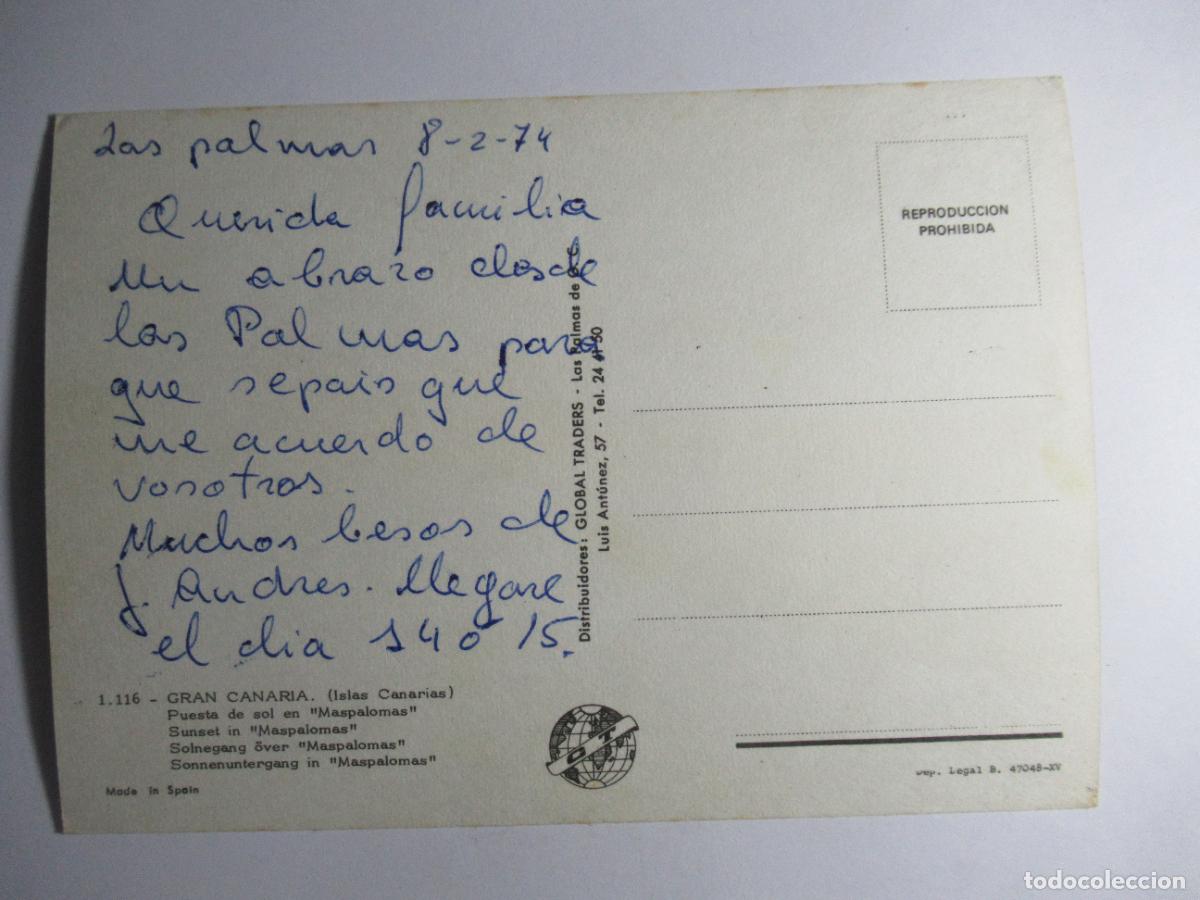 Las palmas 8-2-74
Querida familia
Un abrazo desde
las Palmas para
que sepais que
me acuerdo de
vosotros.
Muchos besos de
J. Andres. Llegare
el dia 14 o 15.
1.116 - GRAN CANARIA. (Islas Canarias)
Puesta de sol en "Maspalomas"
Sunset in "Maspalomas"
Solnegang över "Maspalomas"
Sonnenuntergang in "Maspalomas"
Made in Spain
Distribuidores: GLOBAL TRADERS - Las Palmas de G. C.
Luis Antúnez, 57 - Tel. 24 41 50
GT
REPRODUCCION
PROHIBIDA
Dep. Legal B. 47048-XV
todocoleccion